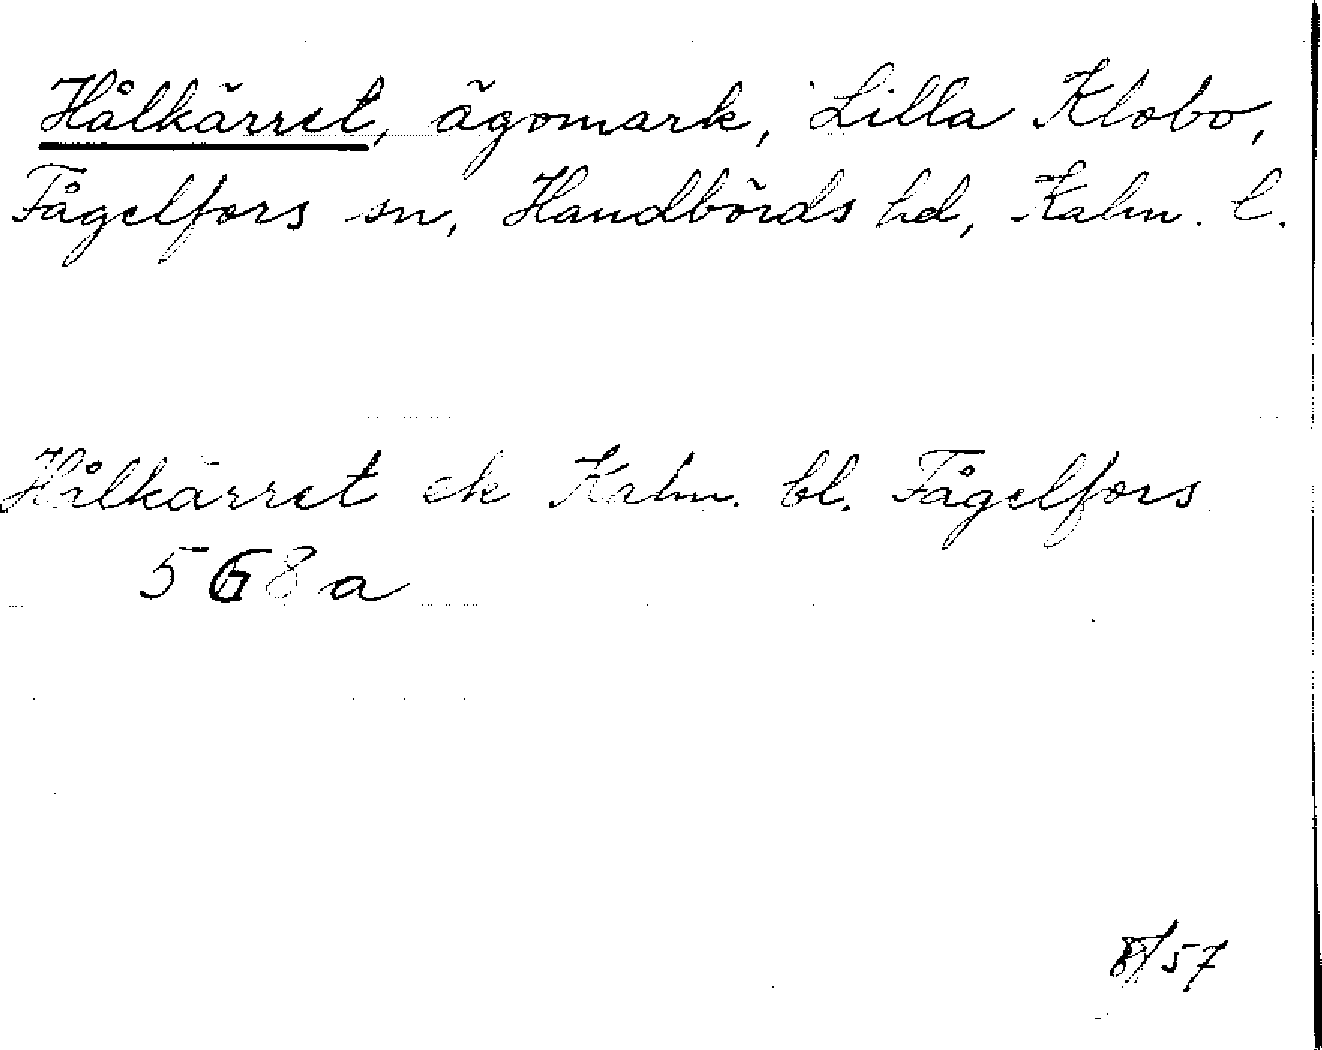 Hålkärret, ägomark, Lilla Klobo,
Fågelfors sn, Handbörds hd, Kalm. l.
Hålkärret ek Kalm. bl. Fågelfors
5 G 8 a
8/57